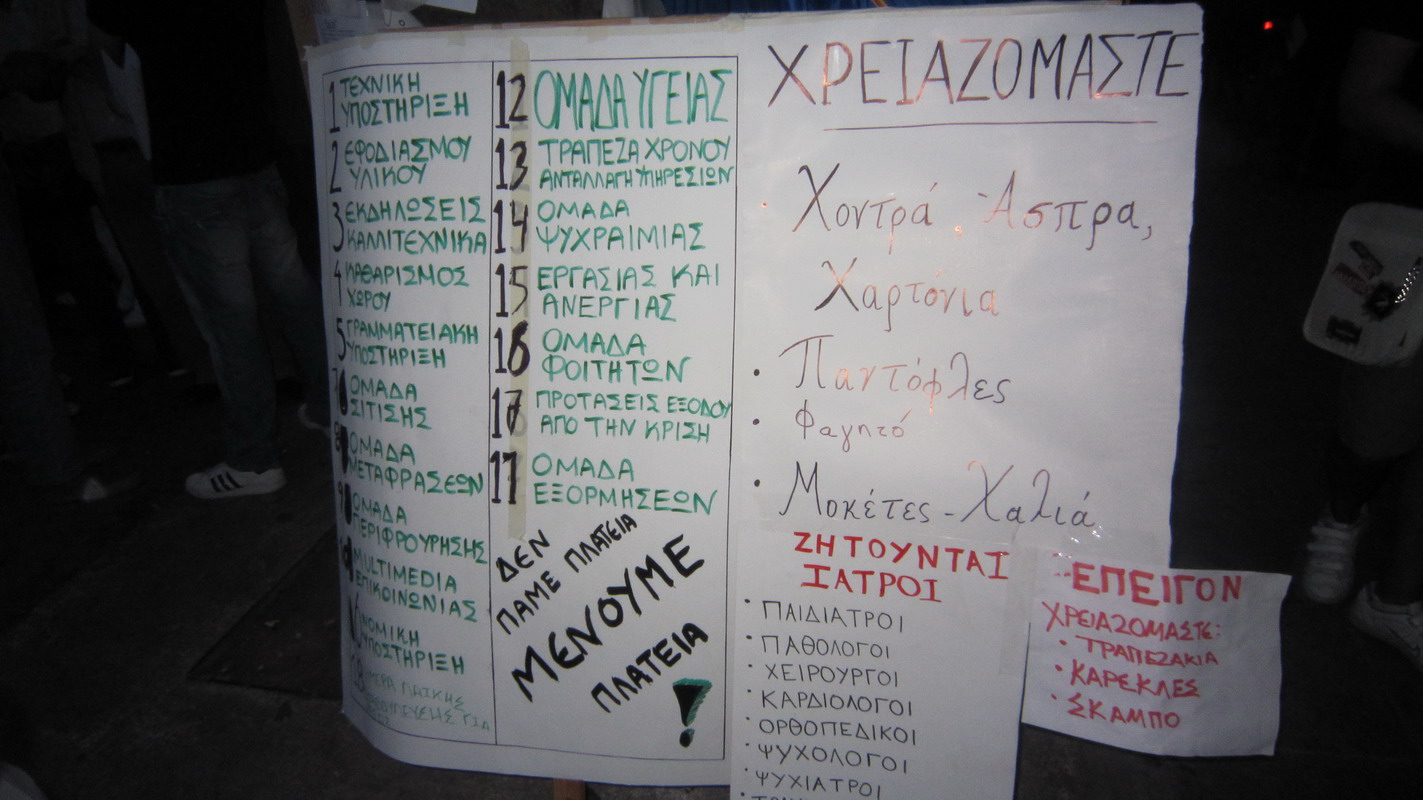 1 ΤΕΧΝΙΚΗ
ΥΠΟΣΤΗΡΙΞΗ
2 ΕΦΟΔΙΑΣΜΟΥ
ΥΛΙΚΟΥ
3 ΕΚΔΗΛΩΣΕΙΣ
ΚΑΛΛΙΤΕΧΝΙΚΑ
4 ΚΑΘΑΡΙΣΜΟΣ
ΧΩΡΟΥ
5 ΓΡΑΜΜΑΤΕΙΑΚΗ
ΥΠΟΣΤΗΡΙΞΗ
ΟΜΑΔΑ
ΣΙΤΙΣΗΣ
ΟΜΑΔΑ
ΜΕΤΑΦΡΑΣΕΩΝ
ΟΜΑΔΑ
ΠΕΡΙΦΡΟΥΡΗΣΗΣ
MULTIMEDIA
ΕΠΙΚΟΙΝΩΝΙΑΣ
ΝΟΜΙΚΗ
ΥΠΟΣΤΗΡΙΞΗ
12 ΟΜΑΔΑ ΥΓΕΙΑΣ
13 ΤΡΑΠΕΖΑ ΧΡΟΝΟΥ
ΑΝΤΑΛΛΑΓΗ ΥΠΗΡΕΣΙΩΝ
14 ΟΜΑΔΑ
ΨΥΧΡΑΙΜΙΑΣ
15 ΕΡΓΑΣΙΑΣ ΚΑΙ
ΑΝΕΡΓΙΑΣ
16 ΟΜΑΔΑ
ΦΟΙΤΗΤΩΝ
17 ΠΡΟΤΑΣΕΙΣ ΕΞΟΔΟΥ
ΑΠΟ ΤΗΝ ΚΡΙΣΗ
17 ΟΜΑΔΑ
ΕΞΟΡΜΗΣΕΩΝ
ΔΕΝ
ΠΑΜΕ ΠΛΑΤΕΙΑ
ΜΕΝΟΥΜΕ
ΠΛΑΤΕΙΑ
!
ΧΡΕΙΑΖΟΜΑΣΤΕ
· Χοντρά, Άσπρα,
Χαρτόνια
· Παντόφλες
· Φαγητό
· Μοκέτες - Χαλιά
ΖΗΤΟΥΝΤΑΙ
ΙΑΤΡΟΙ
· ΠΑΙΔΙΑΤΡΟΙ
· ΠΑΘΟΛΟΓΟΙ
· ΧΕΙΡΟΥΡΓΟΙ
· ΚΑΡΔΙΟΛΟΓΟΙ
· ΟΡΘΟΠΕΔΙΚΟΙ
· ΨΥΧΟΛΟΓΟΙ
· ΨΥΧΙΑΤΡΟΙ
ΕΠΕΙΓΟΝ
ΧΡΕΙΑΖΟΜΑΣΤΕ:
· ΤΡΑΠΕΖΑΚΙΑ
· ΚΑΡΕΚΛΕΣ
· ΣΚΑΜΠΟ